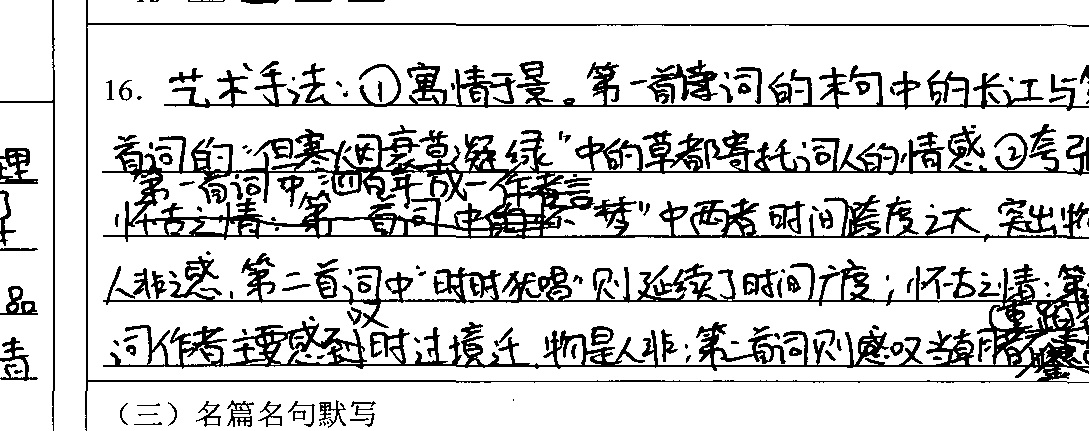 16. 艺术手法:①寓情于景。第一首词的末句中的长江与
首词的"但寒烟衰草凝绿"中的草都寄托词人的情感②夸
第一首词中"四百年成一
梦"中两者时间跨度之大,突出物
人非之感,第二首词中"时时犹唱"则延续了时间广度;怀古之情:第
词作者主要感叹时过境迁,物是人非;第二首词则感叹当朝者
(三)名篇名句默写
理
品
青